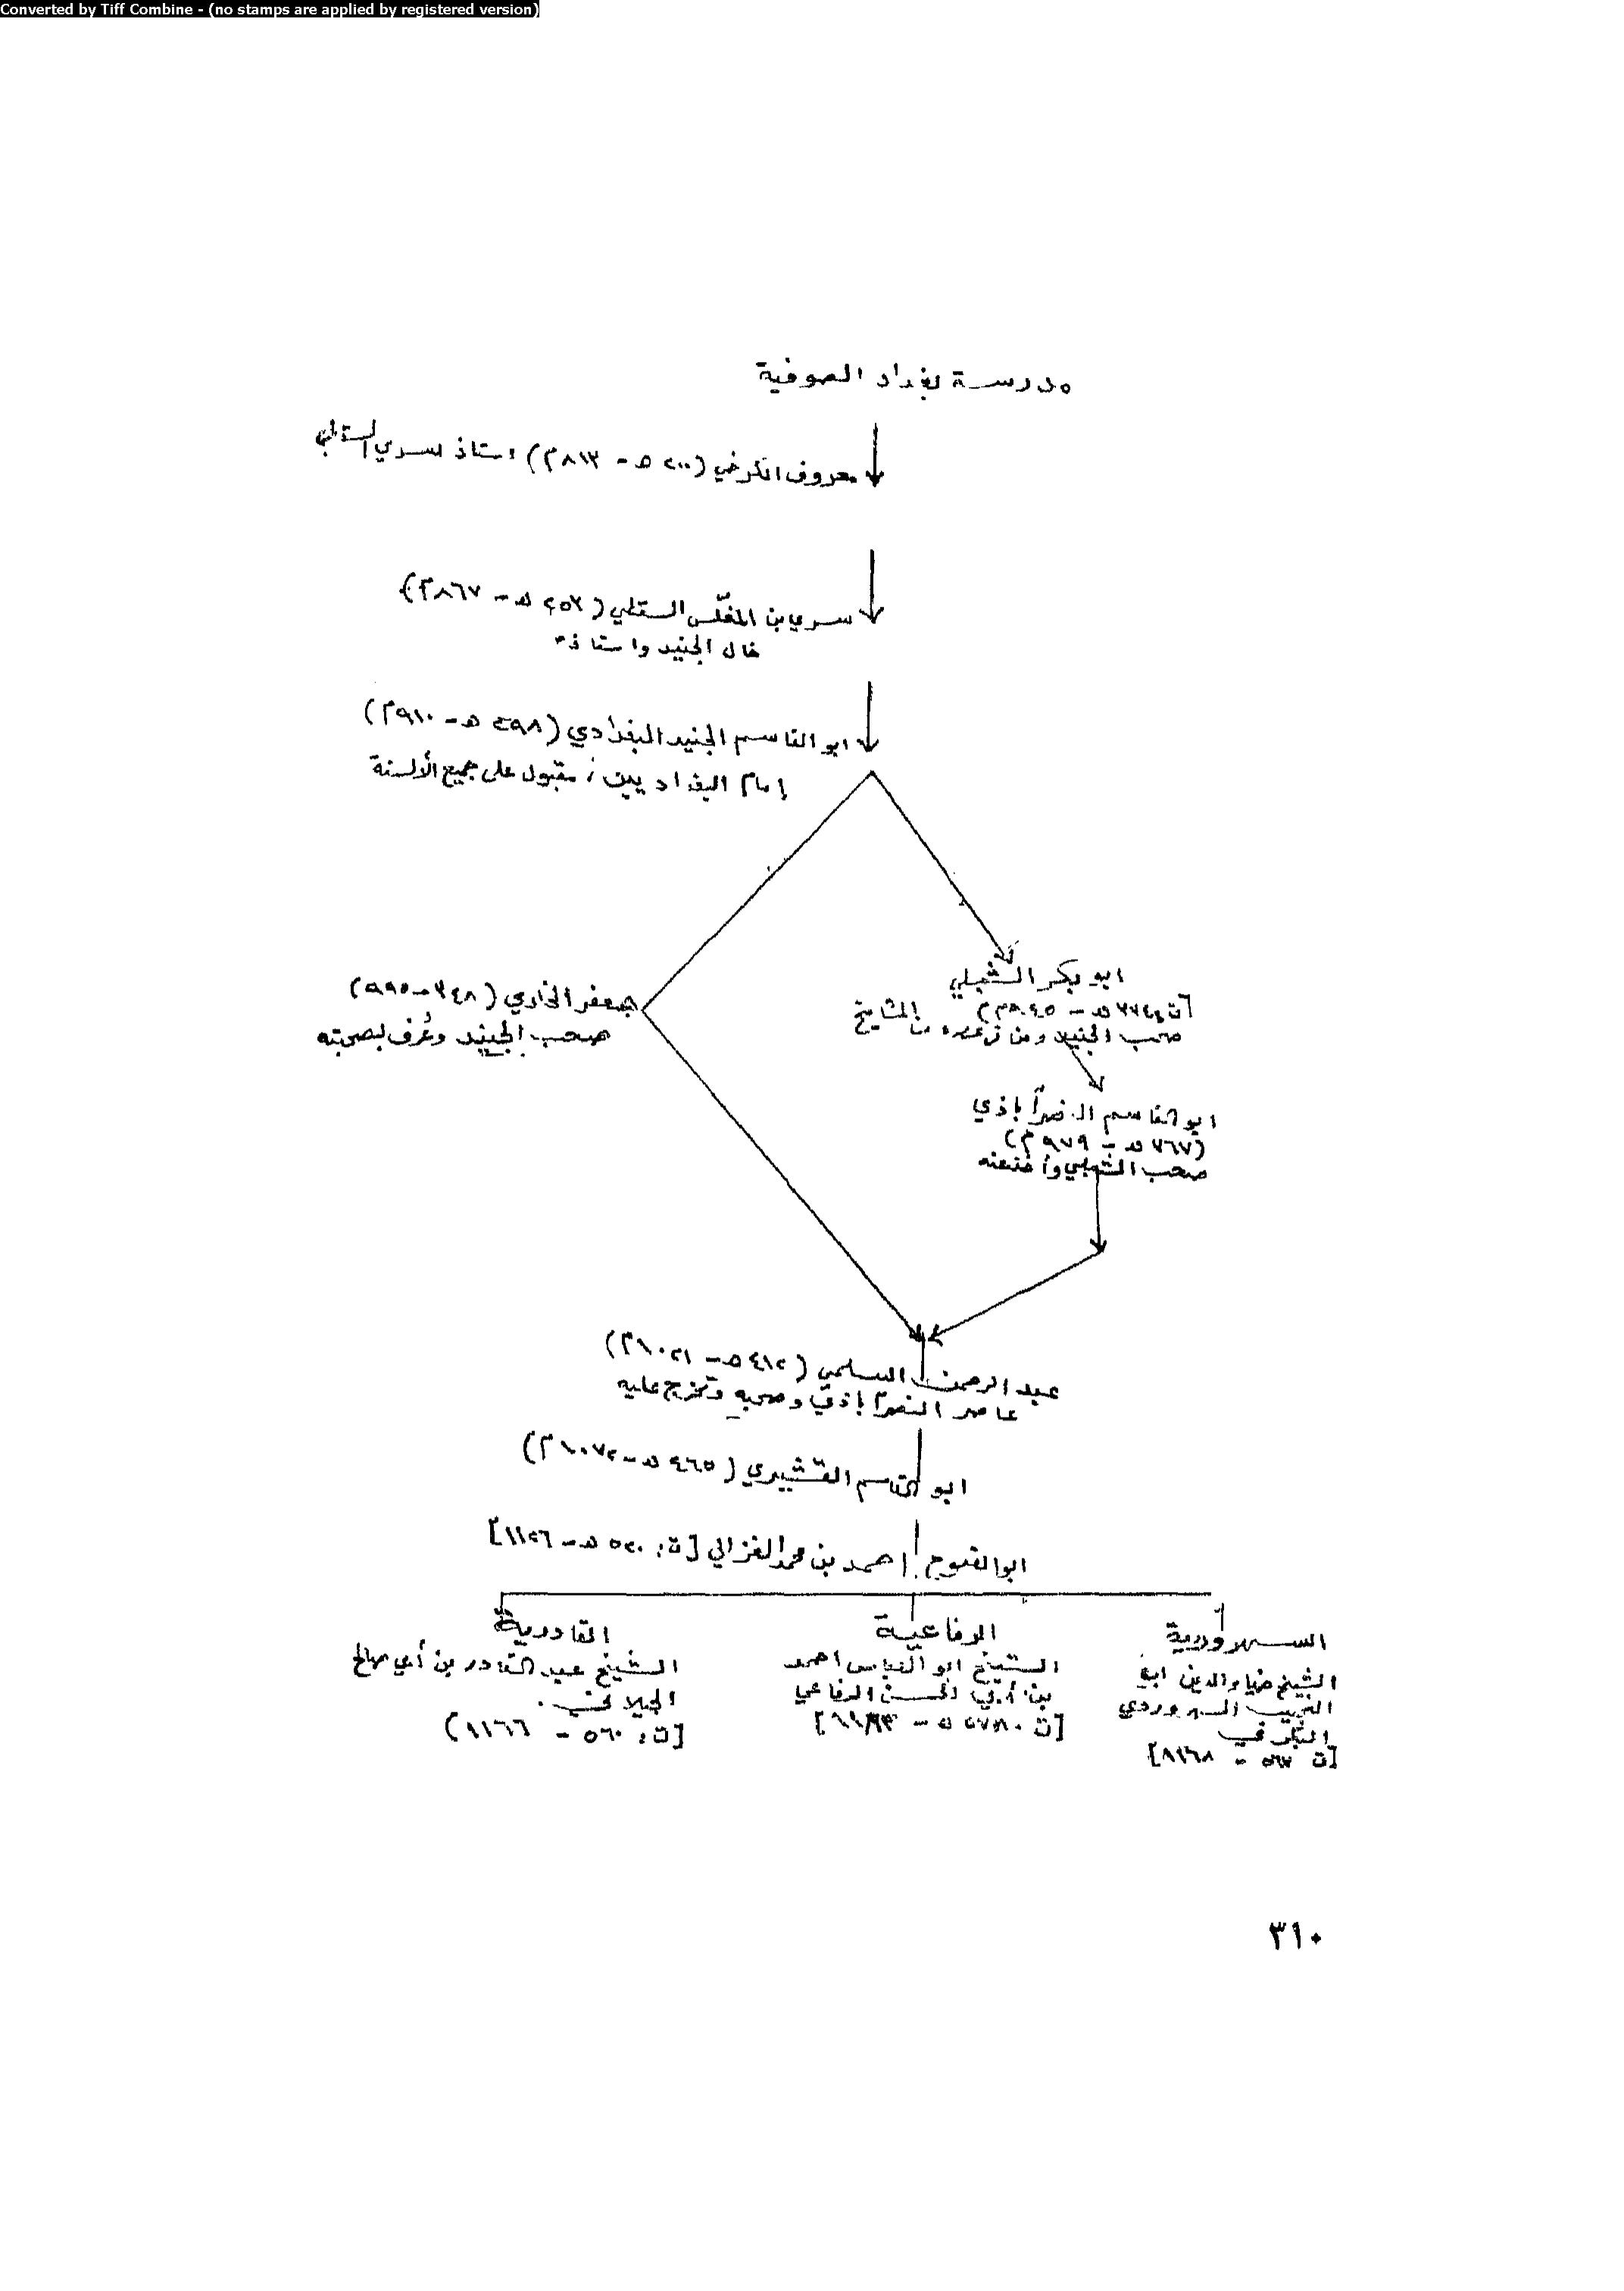 Converted by Tiff Combine - (no stamps are applied by registered version)
مدرسة بغداد الصوفية
معروف الكرخي (٢٠٠ هـ - ٨١٣ م) استاذ لسري السقطي
سري بن المغلّس السقطي (٢٥٣ هـ - ٨٦٧ م)
خال الجنيد واستاذه
ابو القاسم الجنيد البغدادي (٢٩٨ هـ - ٩١٠ م)
إمام البغداديين، مقبول على جميع الألسنة
ابو بكر الشبلي
صحب الجنيد ومن في عصره من المشايخ
جعفر الخلدي (٣٤٨ - ٩٩٥)
صحب الجنيد وعُرف بصحبته
ابو القاسم النصرآباذي
(٣٦٧ هـ - ٩٧٩ م)
صحب الشبلي وأخذ عنه
عبد الرحمن السلمي (٤١٢ هـ - ١٠٢١ م)
عاصر النصرآباذي وصحبه وتخرج عليه
ابو القاسم القشيري (٤٦٥ هـ - ١٠٧٢ م)
ابو الفتوح احمد بن محمد الغزالي [ت: ٥٢٠ هـ - ١١٢٦]
السهروردية
الشيخ ضياء الدين ابو
النجيب السهروردي
البكري
[ت ٥٦٣ - ١١٦٨]
الرفاعية
الشيخ ابو العباس احمد
بن أبي الحسن الرفاعي
القادرية
الشيخ عبد القادر بن أبي صالح
الجيلاني
[ت: ٥٦٠ - ١١٦٦)
٣١٠